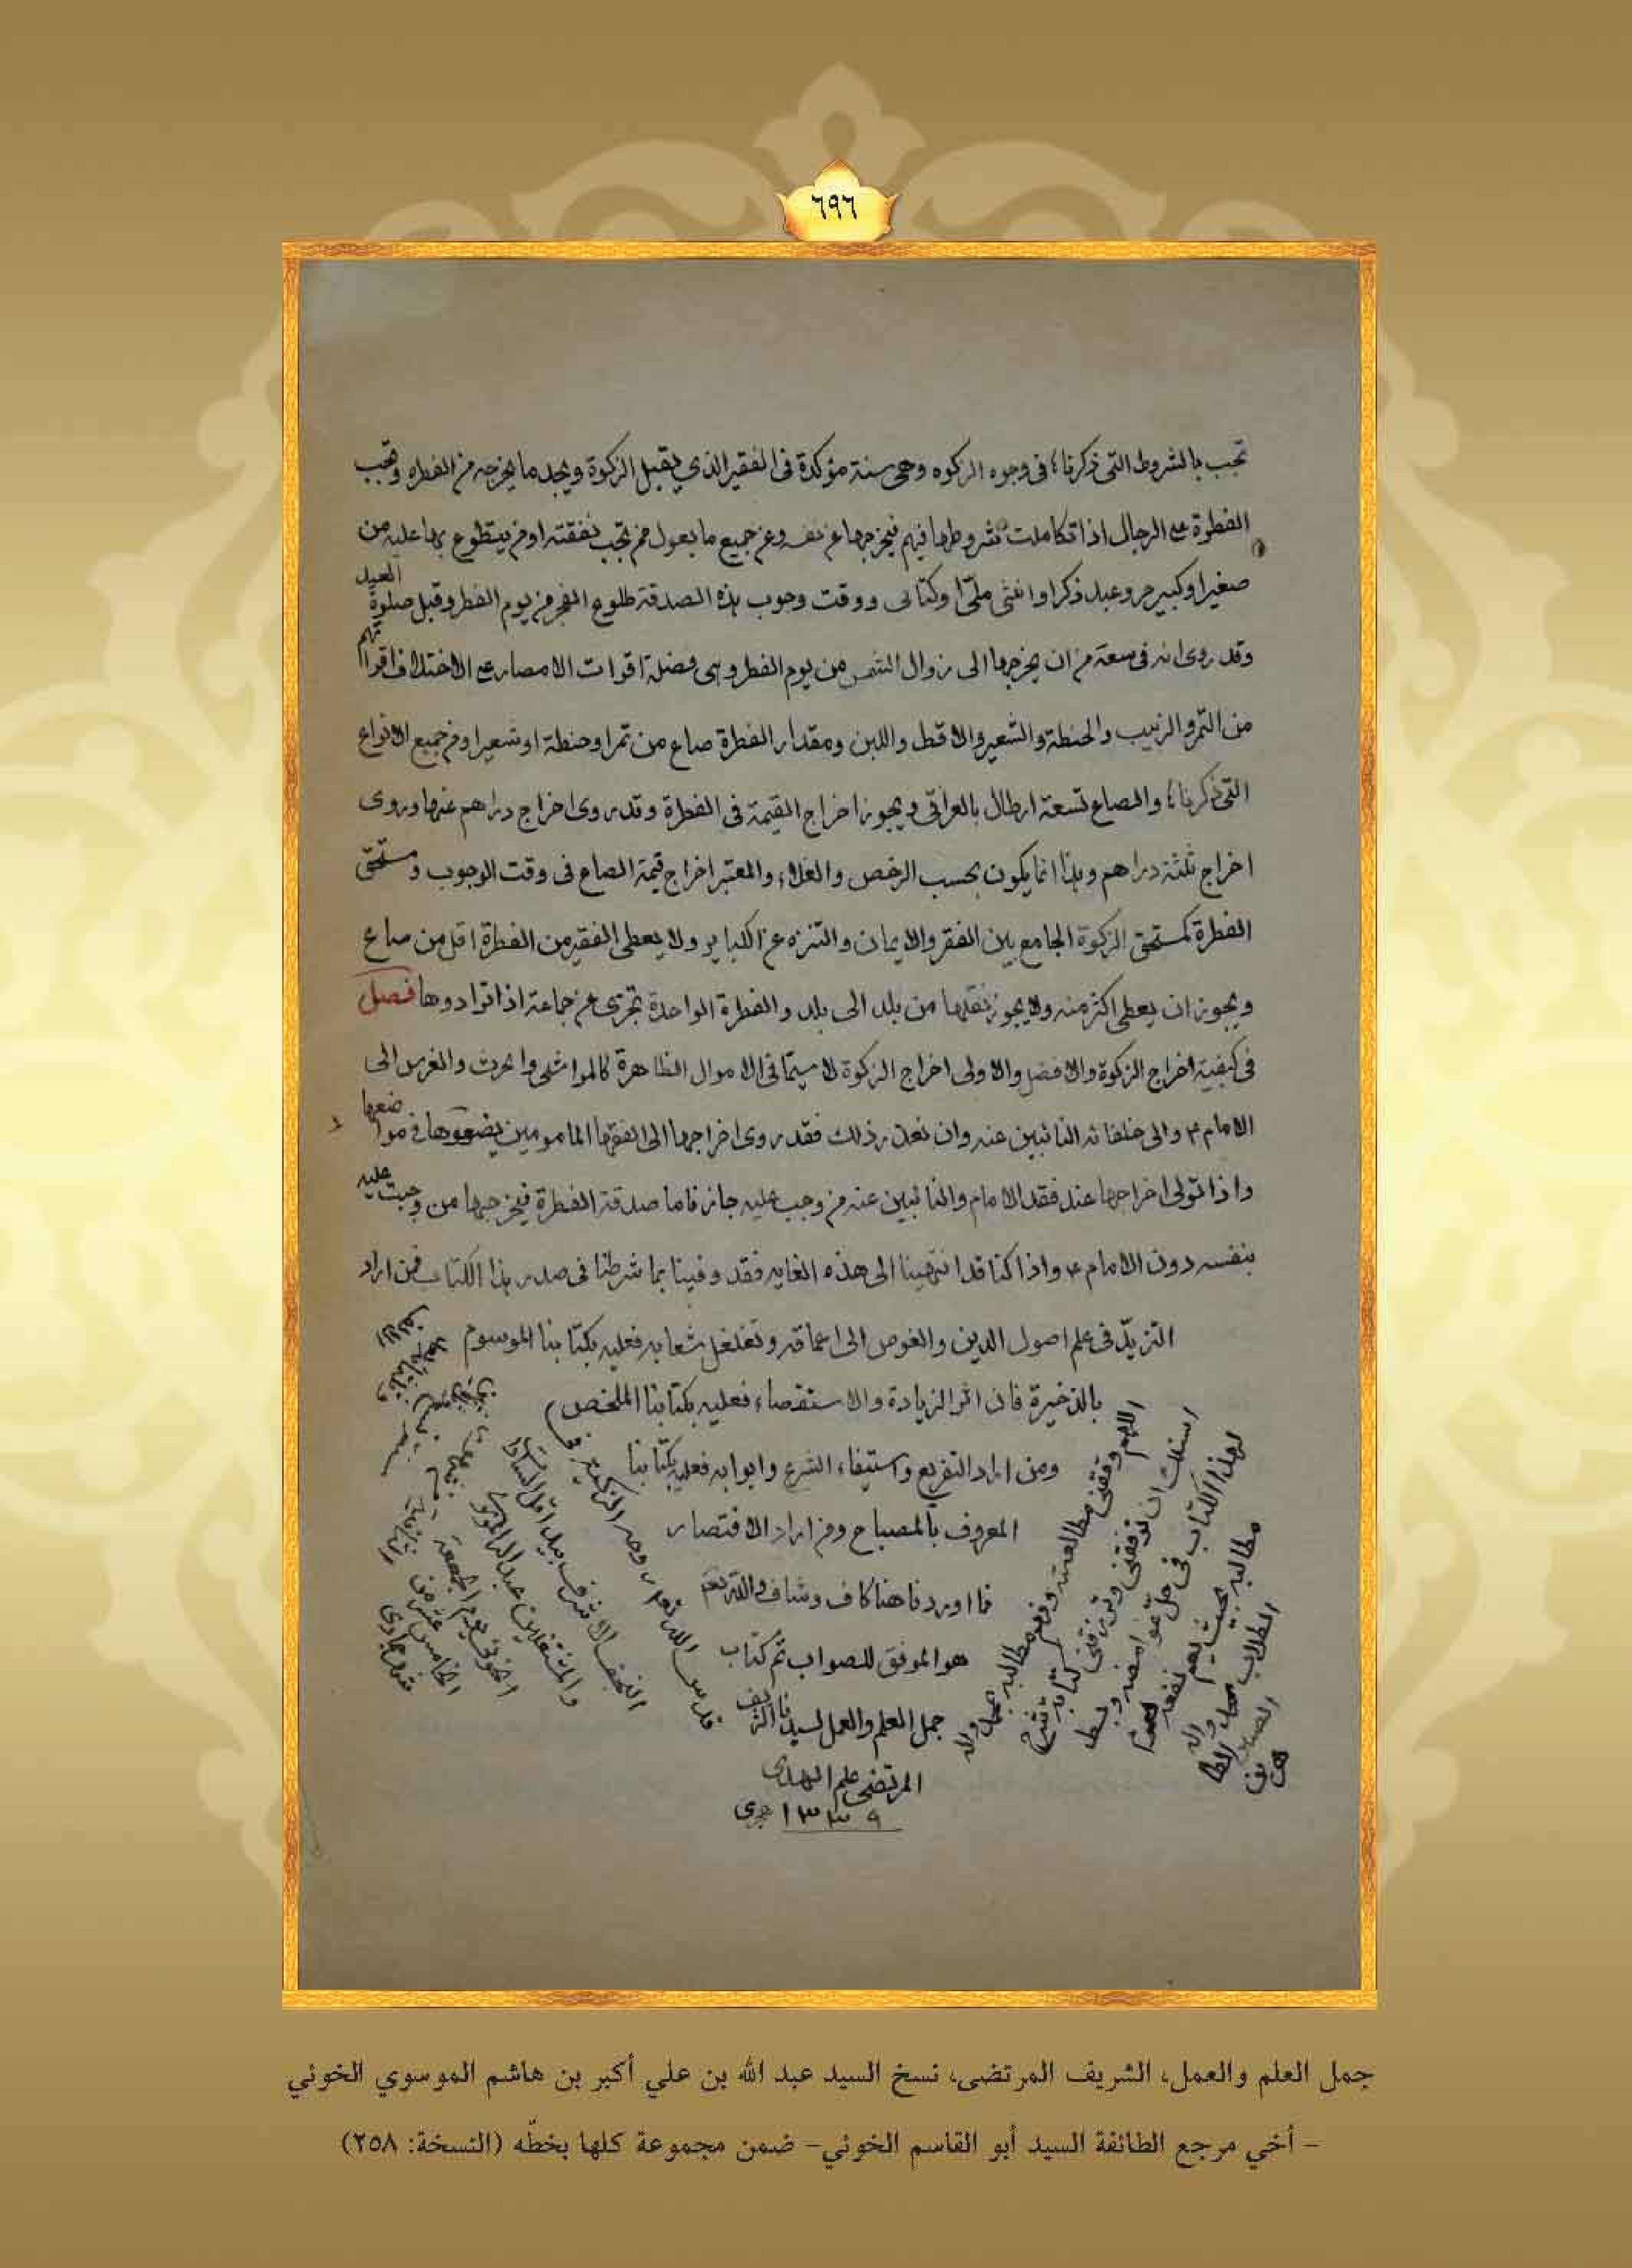 ٦٩٦
تجب بالشروط التى ذكرناها فى وجوه الزكوه وهى سنة مؤكدة فى الفقير الذي يقبل الزكوة ويجد ما يخرجه من الفطره وتجب
الفطرة على الرجال اذا تكاملت شروطها فيهم فيخرجها عن نفسه وعن جميع ما يعول ممن تجب نفقته او من يتطوع بها عليه من
صغير او كبير حر وعبد ذكر او انثى ملّى او كتابى ووقت وجوب هذه الصدقة طلوع الفجر من يوم الفطر وقبل صلوة العيد
وقد روى انه فى سعة من ان يخرجها الى زوال الشمس من يوم الفطر وهى فضلة اقوات الامصار على الاختلاف اقواتهم
من التمر والزبيب والحنطة والشعير والاقط واللبن ومقدار الفطرة صاع من تمر او حنطة او شعير او من جميع الانواع
التى ذكرناها والصاع تسعة ارطال بالعراقى ويجوز اخراج القيمة فى الفطرة وقد روى اخراج دراهم عنها وروى
اخراج ثلثة دراهم وهذا انما يكون بحسب الرخص والغلاء والمعتبر اخراج قيمة الصاع فى وقت الوجوب ومستحق
الفطرة كمستحق الزكوة الجامع بين الفقر والايمان والتنزه عن الكباير ولا يعطى الفقير من الفطرة اقل من صاع
ويجوز ان يعطى اكثر منه ولا يجوز نقلها من بلد الى بلد والفطرة الواحدة تجزى عن جماعة اذا ترادوها فصل
فى كيفية اخراج الزكوة والافضل والاولى اخراج الزكوة لا سيّما فى الاموال الظاهرة كالمواشى والحرث والغرس الى
الامام ع والى خلفائه النائبين عنه وان تعذر ذلك فقد روى اخراجها الى الفقهاء المامومين يضعوها فى مواضعها
واذا تولى اخراجها عند فقد الامام والنائبين عنه من وجب عليه جاز فاما صدقة الفطرة فيخرجها من وجبت عليه
بنفسه دون الامام ع واذا كنا قد انتهينا الى هذه الغايه فقد وفينا بما شرطنا فى صدر هذا الكتاب فمن اراد
التزيّد فى علم اصول الدين والغوص الى اعماقه وتغلغل شعابه فعليه بكتابنا الموسوم
بالذخيرة فان اثر الزيادة والاستقصاء فعليه بكتابنا الملخص
ومن اراد التفريع واستيفاء الشرع وابوابه فعليه بكتابنا
المعروف بالمصباح ومن اراد الاقتصار
فما اوردناه هنا كاف وشاف والله تعـ
هو الموفق للصواب تم كتاب
جمل العلم والعمل لسيدنا الشريف
المرتضى علم الهدى
١٣٣٩ هجرى
اللهم وفقنى مطالعته
اسئلك ان توفقنى وترزقنى كتابة شرح
لهذا الكتاب فى حلّ غوامضه وبسط
مطالبه بحيث يعم نفعه
الطلاب
قدس الله
النجف الاشرف بيد اقل السادات
والمشتغلين عبد الله الموسوى
الخوئى يوم الجمعة
الخامس عشر من
جمادى
جمل العلم والعمل، الشريف المرتضى، نسخ السيد عبد الله بن علي أكبر بن هاشم الموسوي الخوئي
– أخي مرجع الطائفة السيد أبو القاسم الخوئي– ضمن مجموعة كلها بخطّه (النسخة: ٢٥٨)